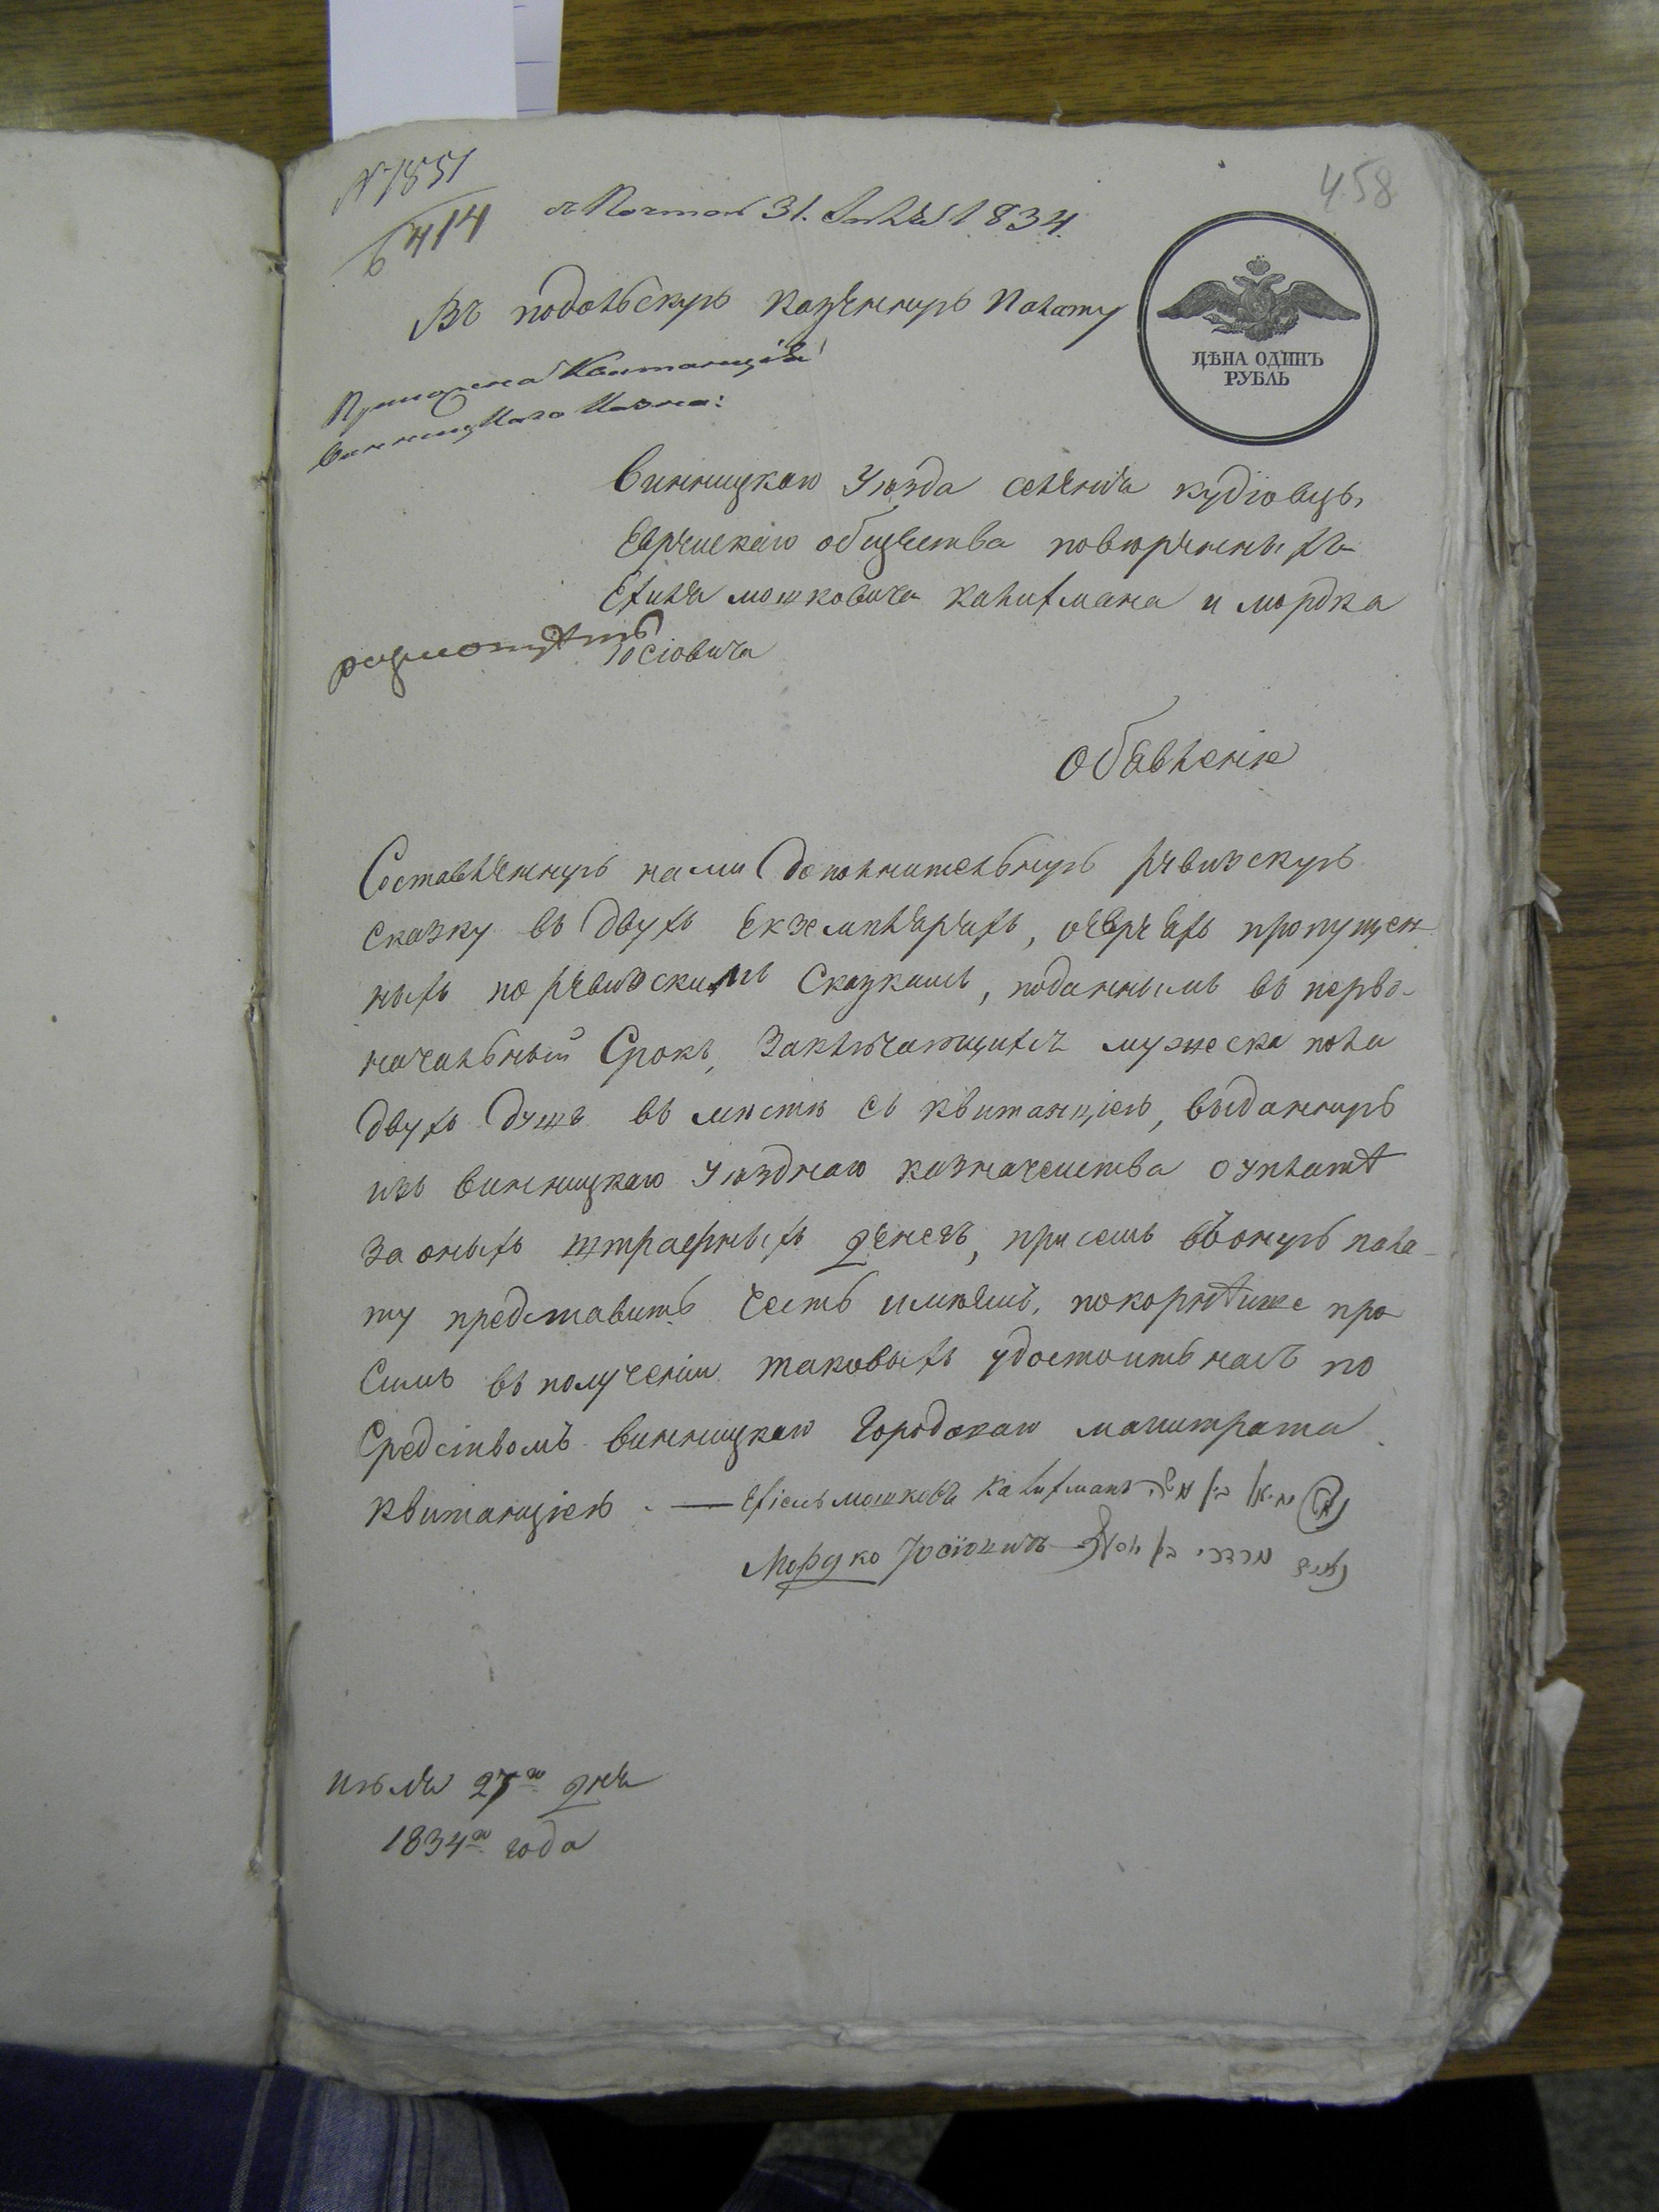 № 7851
6414
4.58
31. 1834.
Въ подольскую казенную Палату
ЦѢНА ОДИНЪ
РУБЛЬ
Винницкаго Уѣзда селенія кудіовцъ,
Еврейскаго общества повѣренныхъ
Ехиля мошковича калихмана и мордка
Іосіовича
объявленіе
Составленную нами дополнительную ревизскую
сказку въ двухъ екземплярахъ, оевреяхъ пропущен-
ныхъ по ревизскимъ сказкамъ, поданнымъ въ перво-
начальный Срокъ, Заключающихся мужеска пола
двухъ душъ въ мѣстѣ съ квитанціею, выданную
изъ винницкаго Уѣзднаго казначейства о уплатѣ
за оныхъ штрафныхъ денегъ, при семъ въ оную пала-
ту представить честь имѣемъ, покорнѣйше про-
Симъ въ получении таковыхъ удостоить насъ по
Средствомъ винницкаго Городскаго магистрата
квитанціею. — Ехіель мошковъ калихманъ
Мордко Іосіовичъ מרדכי בן יוסף
27го дня
1834го года